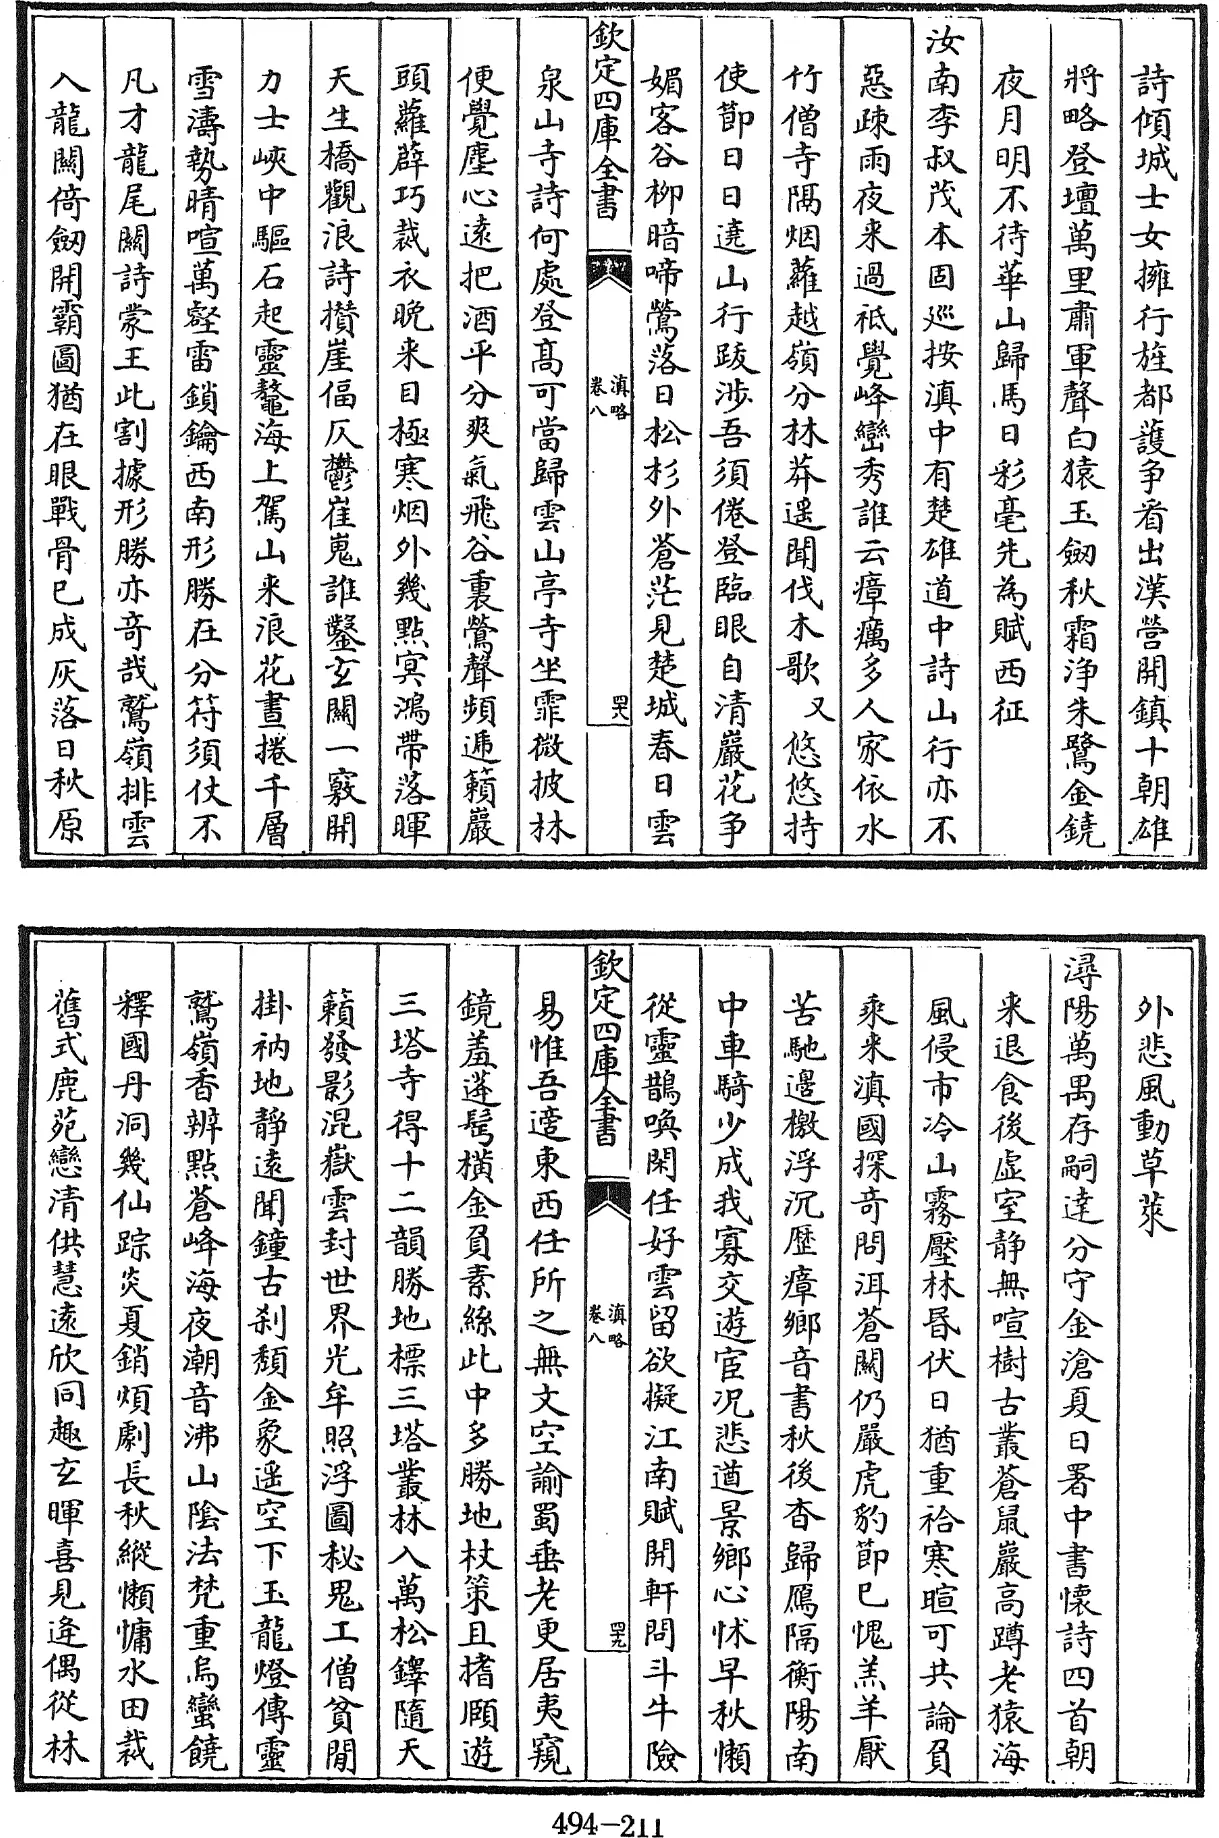 詩傾城士女擁行旌都䕶争看出漢營開鎮十朝雄
將略登壇萬里肅軍聲白猿玉劒秋霜净朱鷺金鐃
夜月明不待華山歸馬日彩毫先為賦西征
汝南李叔茂本固廵按滇中有楚雄道中詩山行亦不
惡疎雨夜来過祗覺峰巒秀誰云瘴癘多人家依水
竹僧寺隔烟蘿越嶺分林莽遥聞伐木歌 又 悠悠持
使節日日遶山行跋涉吾須倦登臨眼自清巖花争
媚客谷栁暗啼鶯落日松杉外蒼茫見楚城春日雲
欽定四庫全書
滇略
卷八
四十八
泉山寺詩何處登髙可當歸雲山亭寺坐霏微披林
便覺塵心逺把酒平分爽氣飛谷裏鶯聲頻遞籟巖
頭蘿薜巧裁衣晚来目極寒烟外幾點冥鴻帶落暉
天生橋觀浪詩攅崖偪仄鬱崔嵬誰鑿玄關一竅開
力士峽中驅石起靈鼇海上駕山来浪花晝捲千層
雪濤勢晴喧萬壑雷鎖鑰西南形勝在分符須仗不
凡才龍尾關詩蒙王此割據形勝亦竒哉鷲嶺排雲
入龍關倚劒開霸圖猶在眼戰骨已成灰落日秋原
外悲風動草萊
潯陽萬禺存嗣達分守金滄夏日署中書懷詩四首朝
来退食後虛室静無喧樹古叢蒼鼠巖高蹲老猿海
風侵市冷山霧壓林昏伏日猶重袷寒暄可共論負
乘来滇國探奇問洱蒼關仍嚴虎豹節已愧羔羊厭
苦馳邊檄浮沉歴瘴鄉音書秋後杳歸鴈隔衡陽南
中車騎少成我寡交遊宦况悲遒景鄉心怵早秋懶
從靈鵲喚閑任好雲留欲擬江南賦開軒問斗牛險
欽定四庫全書
滇略
卷八
四十九
易惟吾適東西任所之無文空諭蜀垂老更居夷窺
鏡羞蓬髩橫金負素絲此中多勝地杖策且搘頤遊
三塔寺得十二韻勝地標三塔叢林入萬松鐸隨天
籟發影混嶽雲封世界光牟照浮圖秘鬼工僧貧閒
掛衲地静逺聞鐘古刹頽金象遥空下玉龍燈傳靈
鷲嶺香辨點蒼峰海夜潮音沸山陰法梵重烏蠻饒
釋國丹洞幾仙踪炎夏銷煩劇長秋縱懶慵水田裁
舊式鹿苑戀清供慧逺欣同趣玄暉喜見逢偶從林
494-211